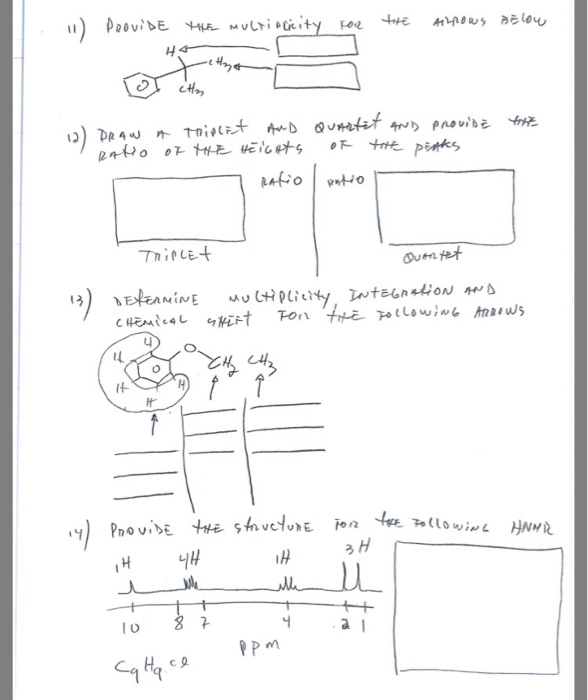 11) PROVIDE THE MULTIPLICITY FOR THE ARROWS BELOW
H
CH3
CH3
12) DRAW A TRIPLET AND QUARTET AND PROVIDE THE
RATIO OF THE HEIGHTS OF THE PEAKS
RATIO RATIO
TRIPLET QUARTET
13) DETERMINE MULTIPLICITY, INTEGRATION AND
CHEMICAL SHIFT FOR THE FOLLOWING ARROWS
H
H O
CH2 CH3
H H
H
14) PROVIDE THE STRUCTURE FOR THE FOLLOWING HNMR
1H 4H 1H 3H
10 8 7 4 2 1
PPM
C9H9Cl